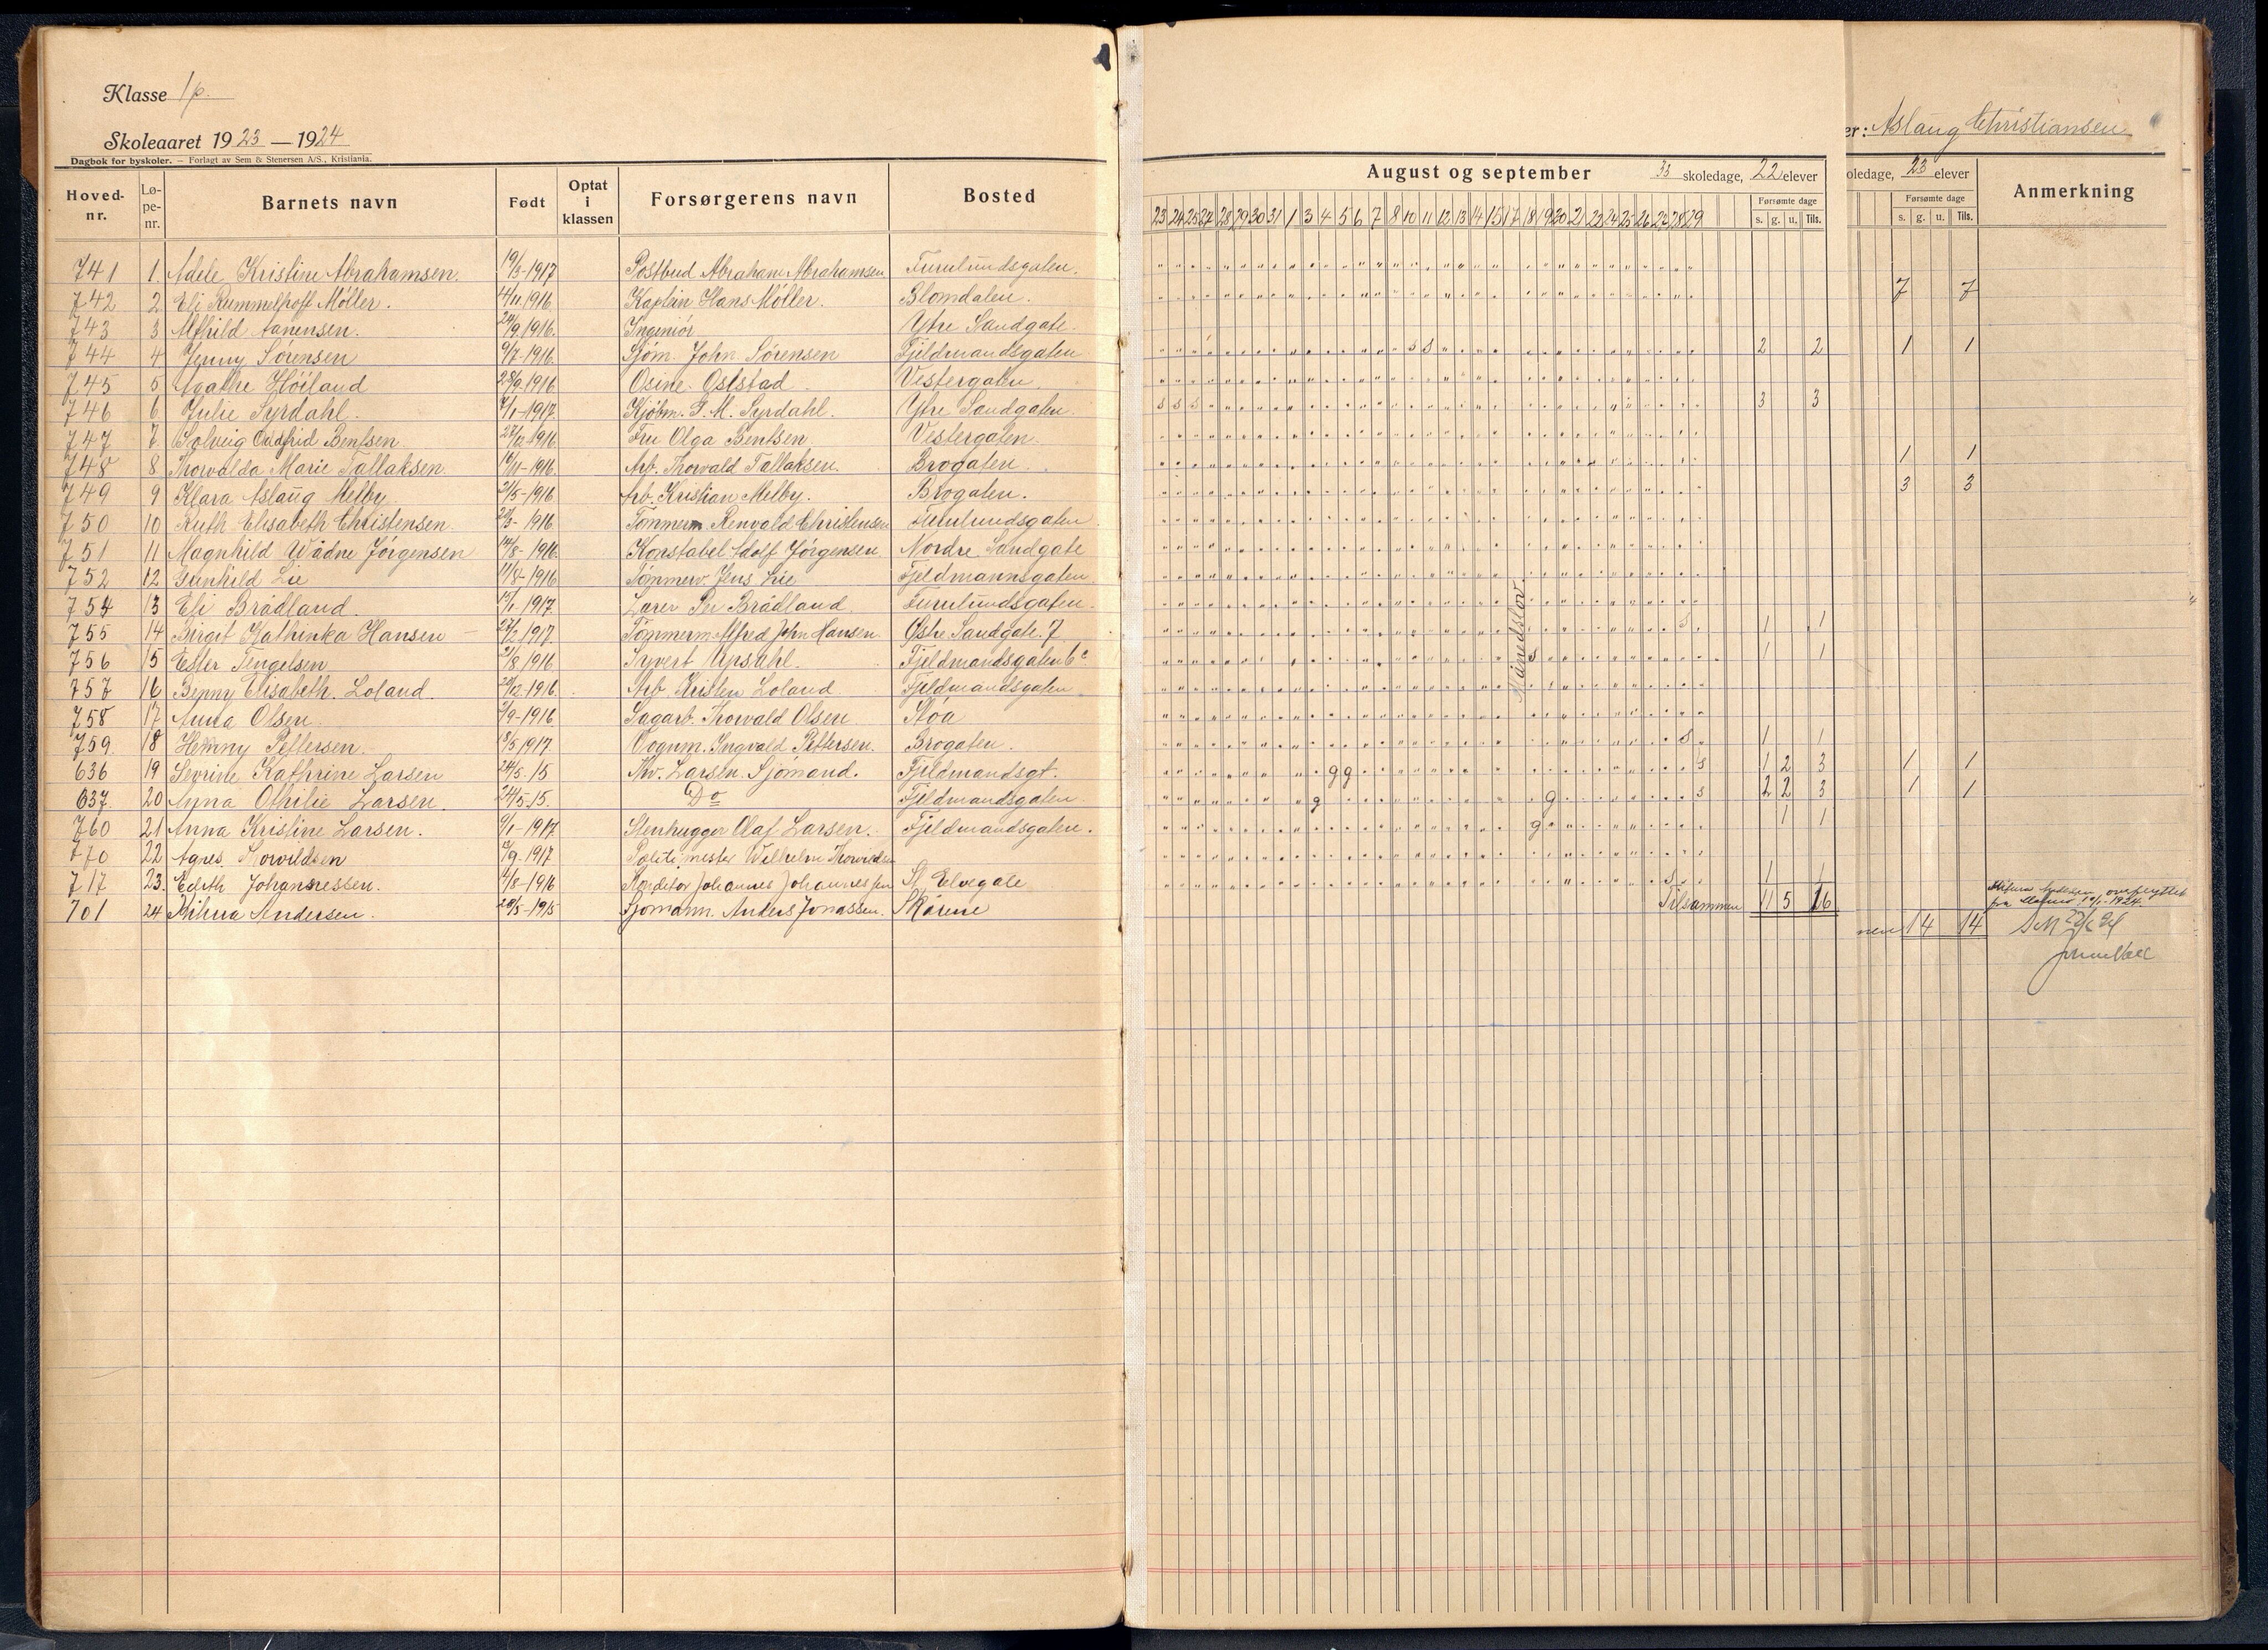 Klasse 1p.
Skoleaaret 1923 — 1924
Dagbok for byskoler. — Forlagt av Sem & Stenersen A/S., Kristiania.
Hoved-nr. Lø-pe-nr. Barnets navn Født Optat i klassen Forsørgerens navn Bosted
741 1. Adele Kristine Abrahamsen. 19/3-1917 Postbud Abraham Abrahamsen Furulundsgaten.
742 2 Eli Rummelhoff Möller. 14/11.1916 Kaptein Hans Möller. Blomdalen.
743 3 Alfhild Aanensen. 24/9.1916. Ingeniör Ytre Sandgate.
744 4 Jenny Sörensen 9/7-1916. Sjöm. John Sörensen Fjeldmandsgaten
745 5 Agathe Höiland 28/9.1916 Osine Oststad Vestergaten.
746 6 Julie Syrdahl. 7/1-1917. Kjöbm. G. M. Syrdahl. Ytre Sandgaten.
747 7 Solveig Oudfrid Bentsen 27/12.1916 Fru Olga Bentsen. Vestergaten.
748 8 Thorvalda Marie Tallaksen. 16/11-1916. Arb. Thorvald Tallaksen. Brogaten.
749 9 Klara Aslaug Melby. 21/5-1916 Arb. Kristian Melby. Brogaten.
750 10 Ruth Elisabeth Christensen 1916 Tömmerm. Renvald Christensen Furulundsgaten
751 11 Magnhild Wådne Jörgensen 14/8-1916. Konstabel Adolf Jörgensen Nordre Sandgate
752 12 Gunhild Lie 11/8-1916 Tömmerv. Jens Lie Fjeldmannsgaten.
754 13 Eli Brådland. 1917. Lærer Per Brådland. Furulundsgaten.
755 14 Birgit Kathinka Hansen 27/2.1917. Tömmerm. Alfred John Hansen. Østre Sandgate. 7
756 15 Ester Tengelsen 21/8 1916 Syvert Upsahl. Fjeldmandsgaten 6c
757 16 Benny Elisabeth. Loland. 20/12-1916. Arb. Kristen Loland Fjeldmandsgaten
758 17 Anna Olsen 1/9-1916 Sagarb. Thorvald Olsen Stöa
759. 18 Henny Pettersen. 18/5 1917. Vognm. Ingvald Pettersen. Brogaten.
636 19 Sevrine Kathrine Larsen 24/5-15 Kv. Larsen. Sjömand. Fjeldmandsgt.
637. 20 Anna Othilie Larsen. 24/5-15. Do Fjeldmandsgaten
760 21 Anna Kristine Larsen. 9/1-1917. Stenhugger Olaf Larsen. Fjeldmandsgaten.
770 22 Agnes Thorvildsen 1917 Politimester Wilhelm Thorvildsen
717 23. Edith Johannessen. 1916 Konditor Johannes Johannessen St. Elvegate
701 24 Hilma Andersen. 20/5-1915 Sjömann. Anders Jonassen. Skårene
August og september 33 skoledage, 22 elever
Forsømte dage
s. g. u. Tils.
23 24 25 27 28 29 30 31 1 3 4 5 6 7 8 10 11 12 13 14 15 17 18 19 20 21 22 24 25 26 27 28 29
Månedslov.
s s 2 2
s s s 3 3
s 1 1
s 1 1
s 1 1
g g s 1 2 3
g g s 2 2 3
g 1 1
s 1 1
Tilsammen 11 5 16
er: Aslaug Christiansen
oledage, 23 elever
Forsømte dage
s. g. u. Tils.
Anmerkning
7 7
1 1
1 1
3 3
1 1
1 1
Hilma Andersen, overflyttet
fra 1924.
nen 14 14